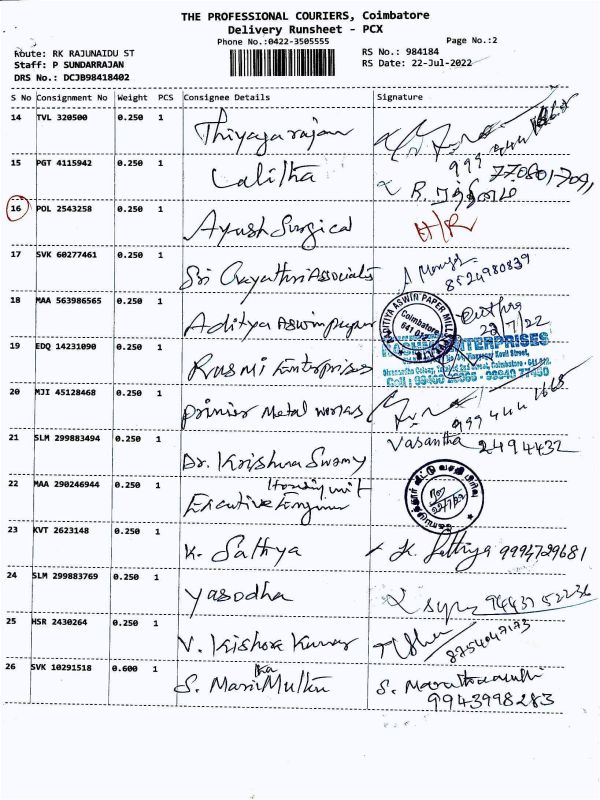 THE PROFESSIONAL COURIERS, Coimbatore
Delivery Runsheet - PCX
Phone No.:0422-3505555 Page No.:2
Route: RK RAJUNAIDU ST RS No.: 984184
Staff: P SUNDARRAJAN RS Date: 22-Jul-2022
DRS No.: DCJB98418402
S No Consignment No Weight PCS Consignee Details Signature
14 TVL 320500 0.250 1 Thiyagarajan
15 PGT 4115942 0.250 1 Lalitha
16 POL 2543258 0.250 1 Ayush Surgical H/R
17 SVK 60277461 0.250 1 Sri Gayathri Associates 8524980839
18 MAA 563986565 0.250 1 Aditya Aswin paper
ADITIYA ASWIN PAPER MILL
Coimbatore
22/7/22
19 EDQ 14231090 0.250 1 Rusmi Enterprises
ENTERPRISES
20 MJI 45128468 0.250 1 primier metal works 999 444 1668
21 SLM 299883494 0.250 1 Dr. Krishna Swamy Vasantha 2494432
22 MAA 290246944 0.250 1 Executive Engineer Housing unit
22/7/22
23 KVT 2623148 0.250 1 K. Sathya K. Sathiya 9994729681
24 SLM 299883769 0.250 1 yasodha 9443752236
25 HSR 2430264 0.250 1 V. Kishora Kumar 8754047173
26 SVK 10291518 0.600 1 S. Mari Muthu S. 9943998283